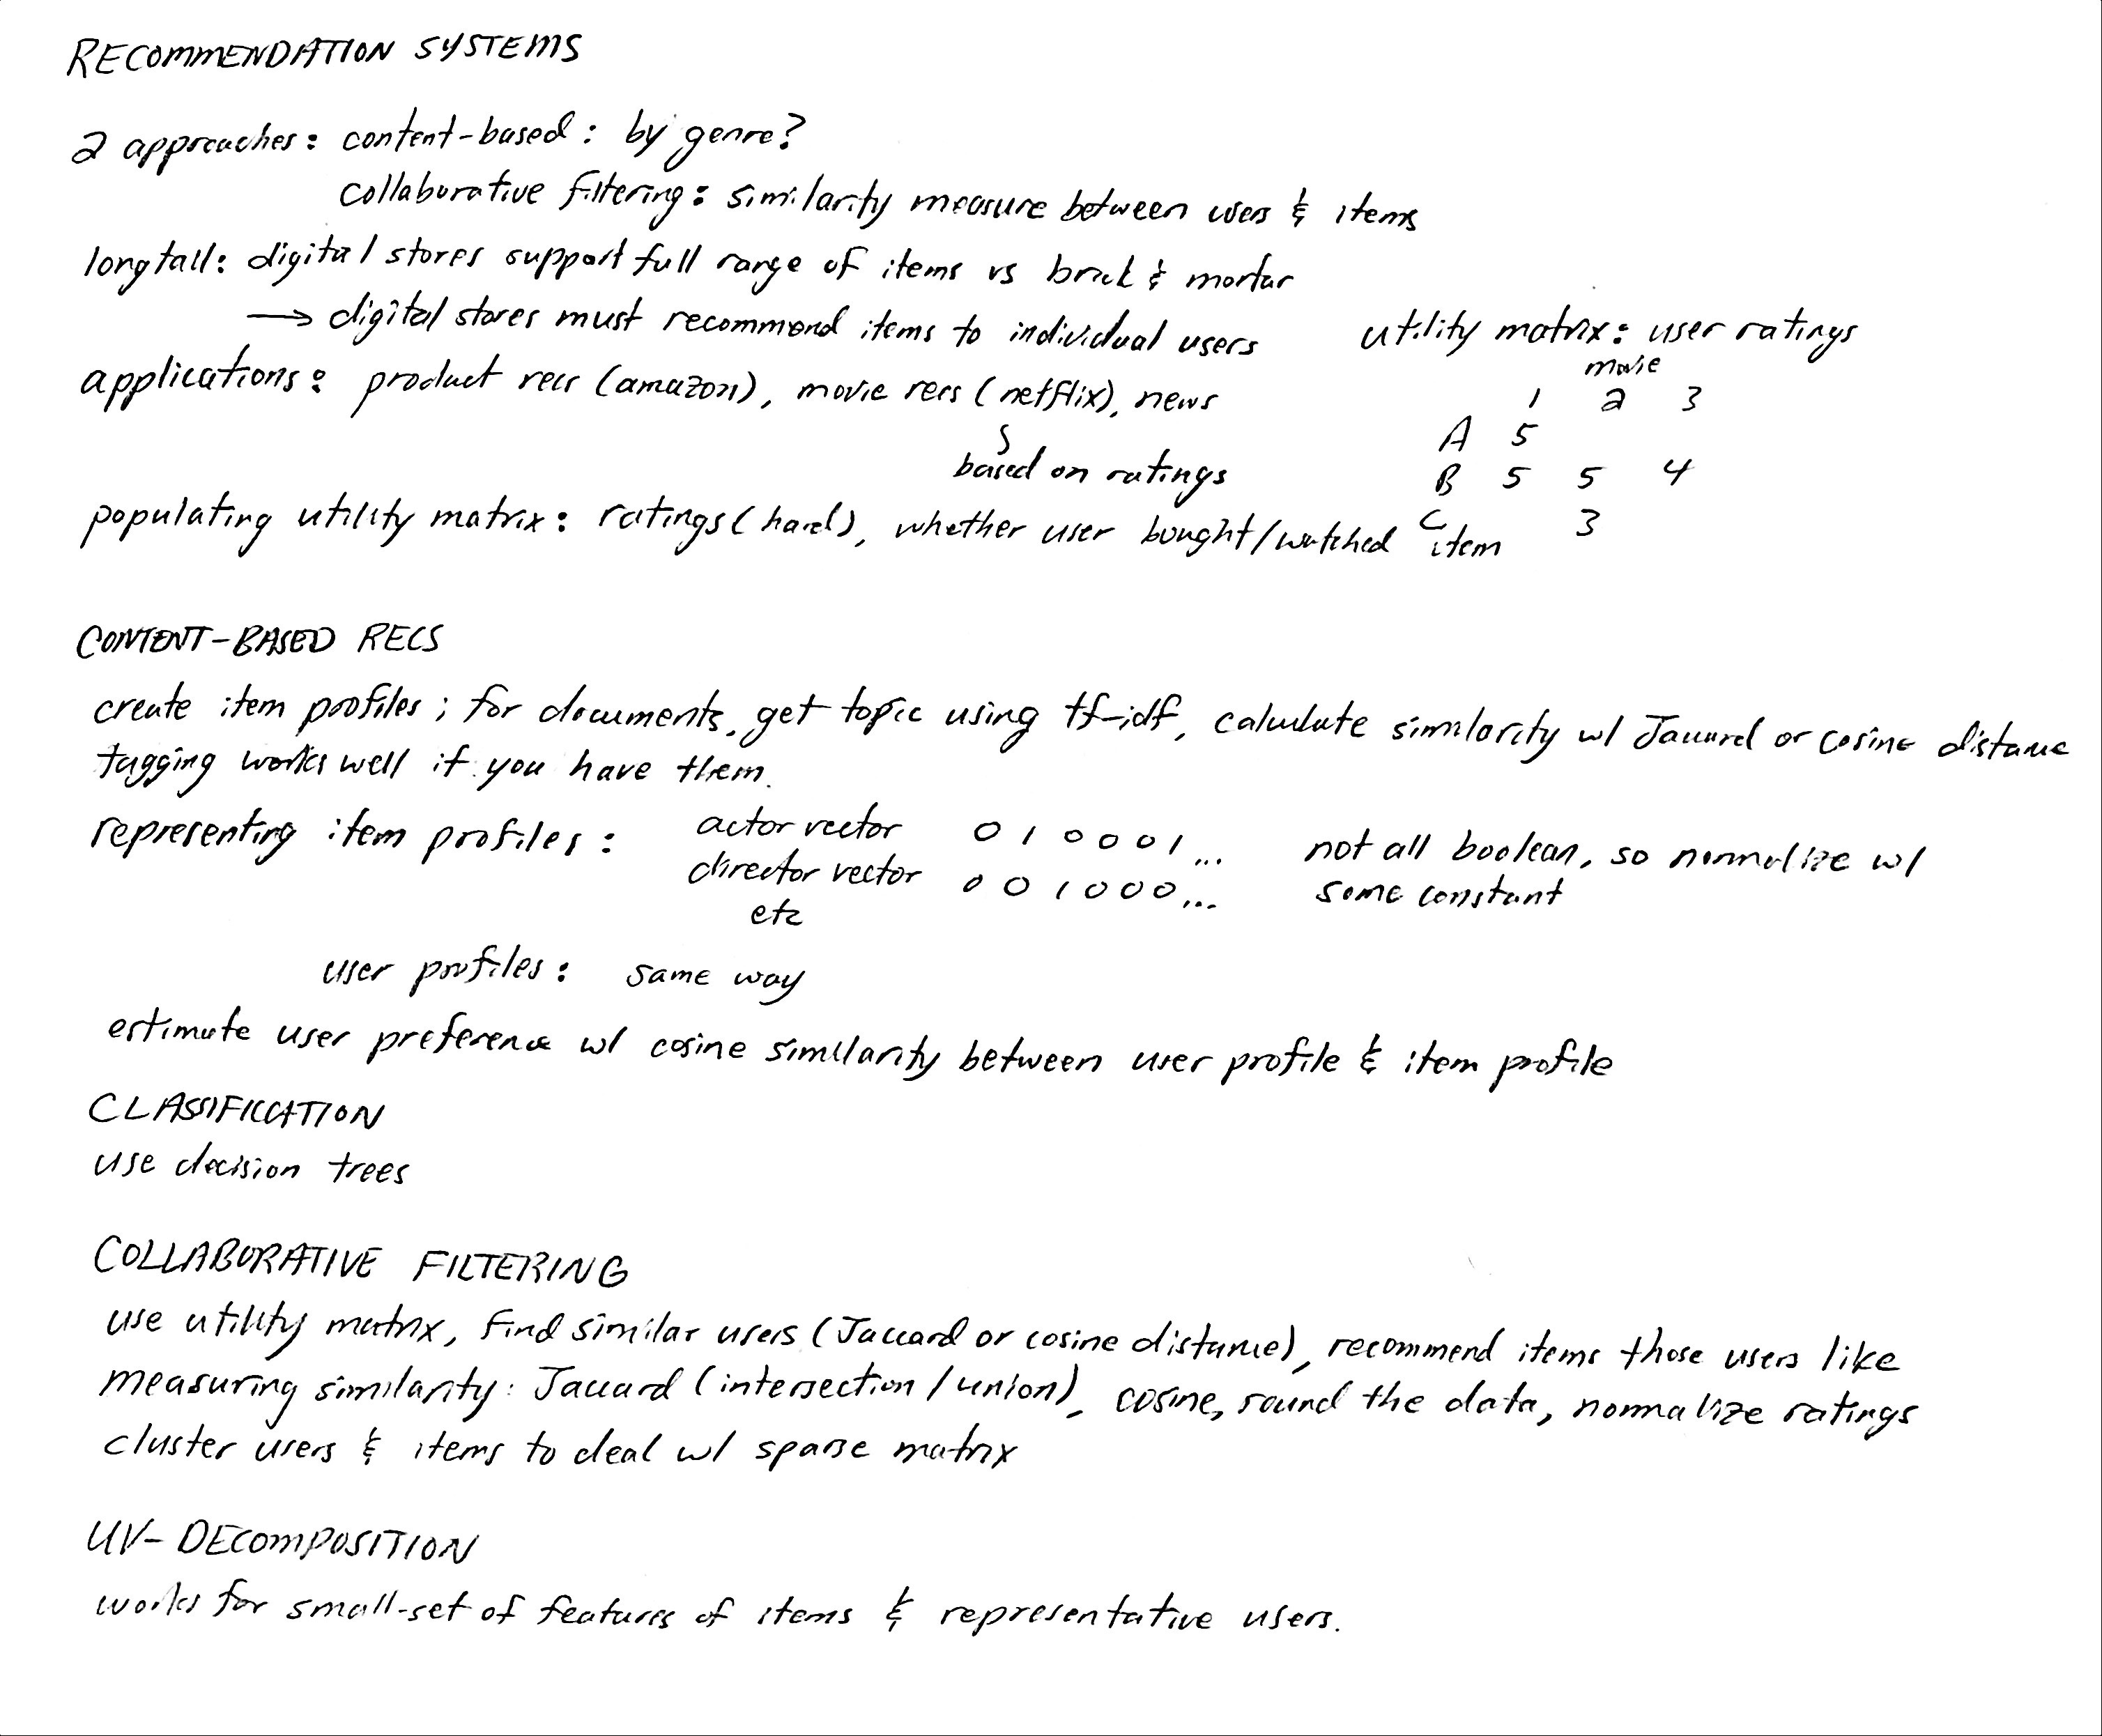 RECOMMENDATION SYSTEMS
2 approaches: content-based: by genre?
collaborative filtering: similarity measure between users & items
long tail: digital stores support full range of items vs brick & mortar
→ digital stores must recommend items to individual users
applications: product recs (amazon), movie recs (netflix), news
based on ratings
utility matrix: user ratings
movie
1 2 3
A 5
B 5 5 4
C 3
populating utility matrix: ratings (hard), whether user bought/watched item
CONTENT-BASED RECS
create item profiles; for documents, get topic using tf-idf, calculate similarity w/ Jaccard or cosine distance
tagging works well if you have them.
representing item profiles: actor vector 0 1 0 0 0 1 ... not all boolean, so normalize w/
director vector 0 0 1 0 0 0 ... some constant
etc
user profiles: same way
estimate user preference w/ cosine similarity between user profile & item profile
CLASSIFICATION
use decision trees
COLLABORATIVE FILTERING
use utility matrix, find similar users (Jaccard or cosine distance), recommend items those users like
measuring similarity: Jaccard (intersection / union), cosine, round the data, normalize ratings
cluster users & items to deal w/ sparse matrix
UV-DECOMPOSITION
works for small-set of features of items & representative users.